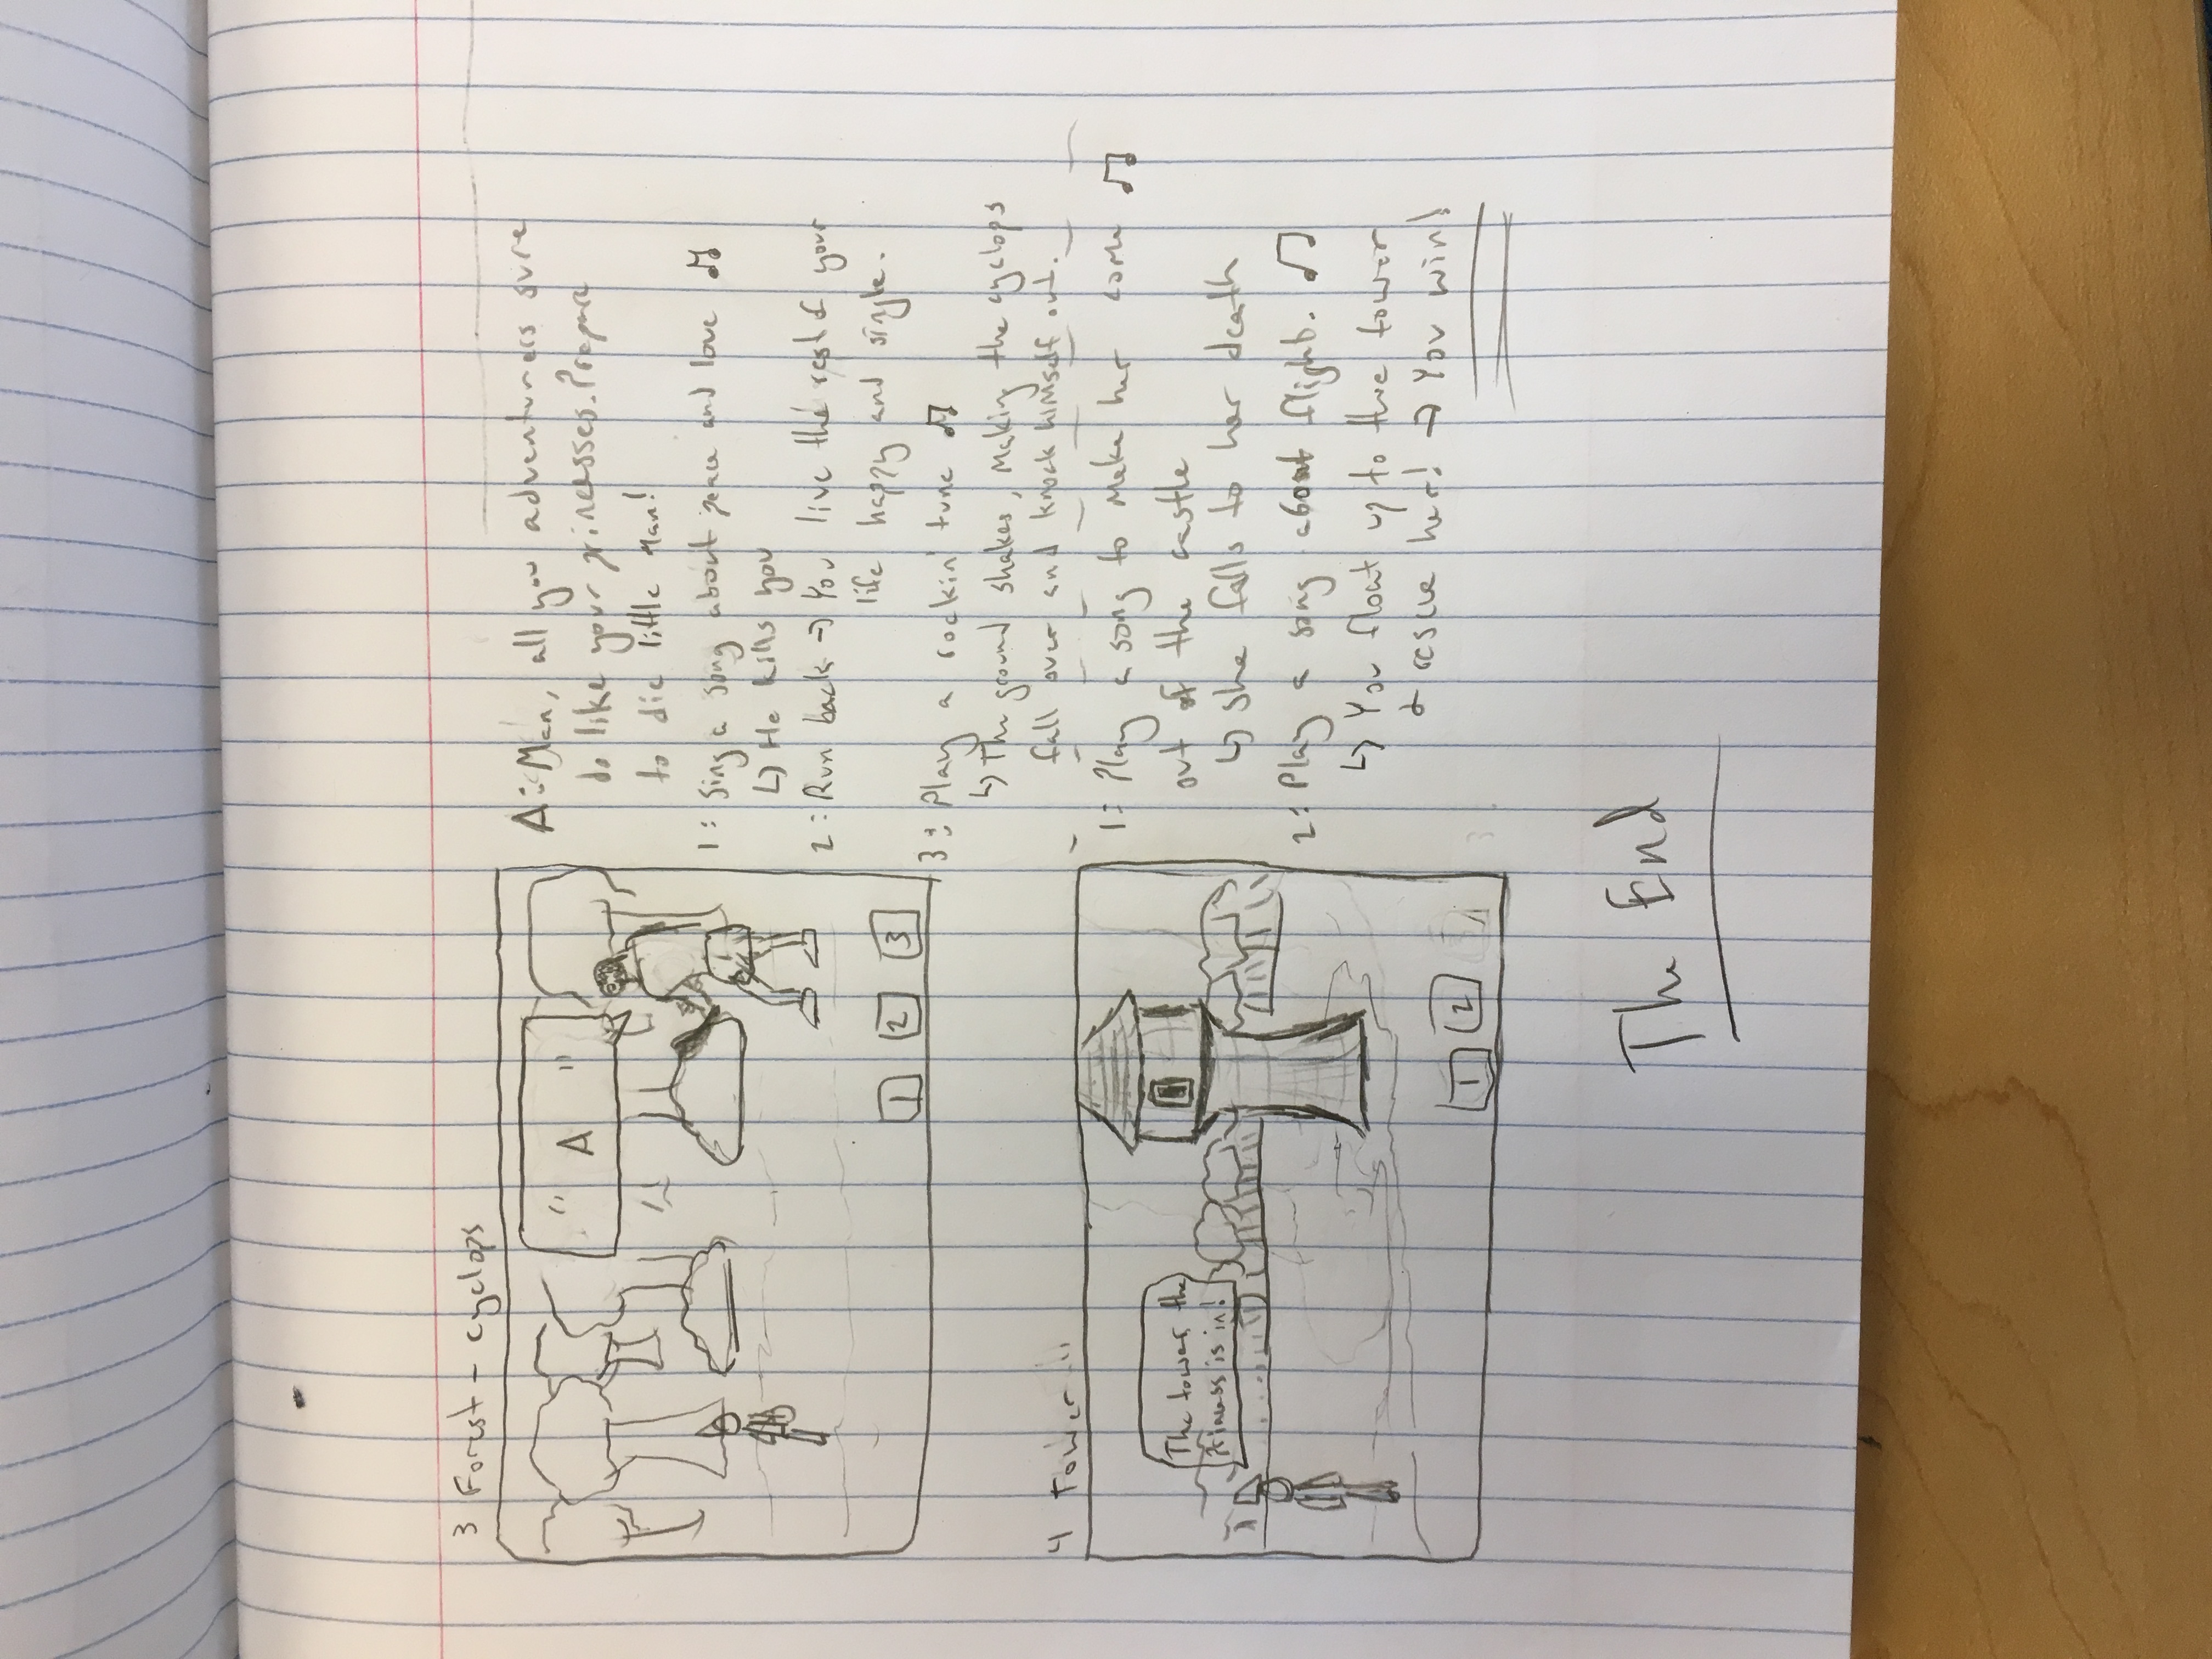 3 Forest - cyclops
" A "
1 2 3
A: Man, all you adventurers sure
do like your princesses. Prepare
to die little man!
1: Sing a song about peace and love ♫
↳ He kills you
2: Run back → You live the rest of your
life happy and single.
3: Play a rockin' tune ♫
↳ The ground shakes, making the cyclops
fall over and knock himself out.
4 Tower
The tower the
princess is in!
1 2
1: Play a song to make her come ♫
out of the castle
↳ she falls to her death
2: Play a song about flight. ♫
↳ You float up to the tower
& rescue her! → You win!
The End